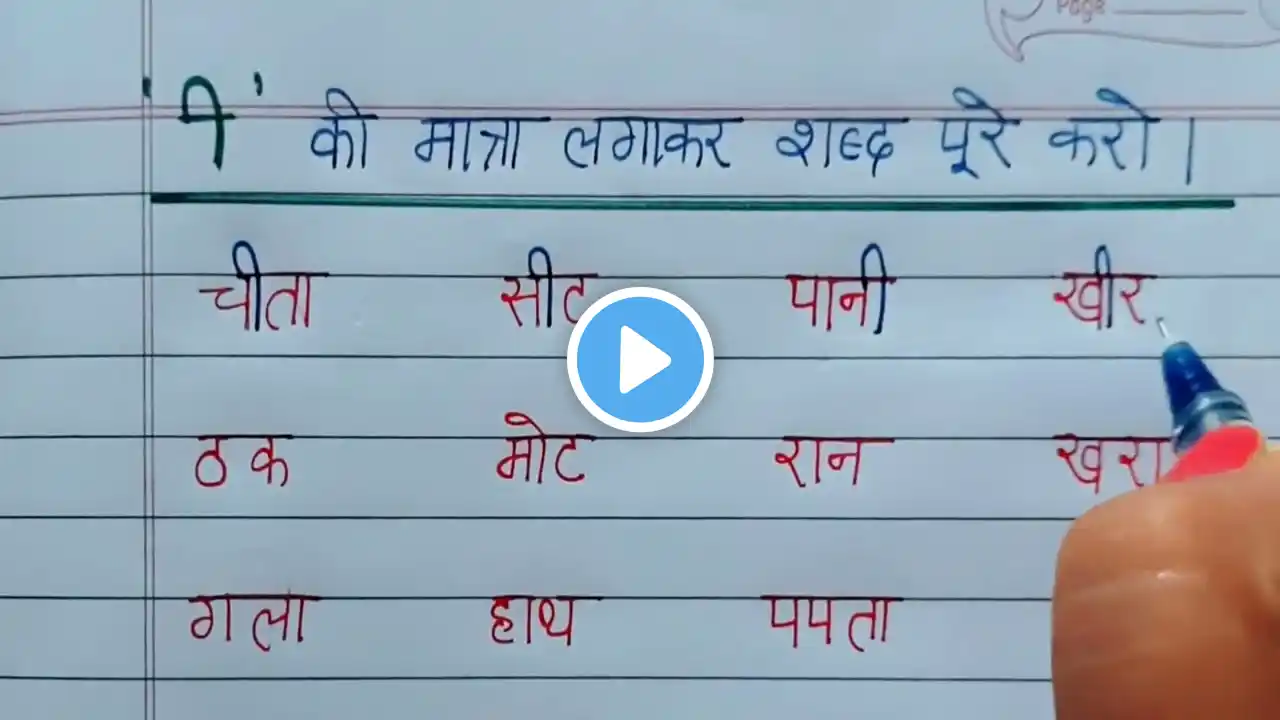 Page
'ी' की मात्रा लगाकर शब्द पूरे करो।
चीता सीट पानी खीर
ठक मोट रान खरा
गला हाथ पपता